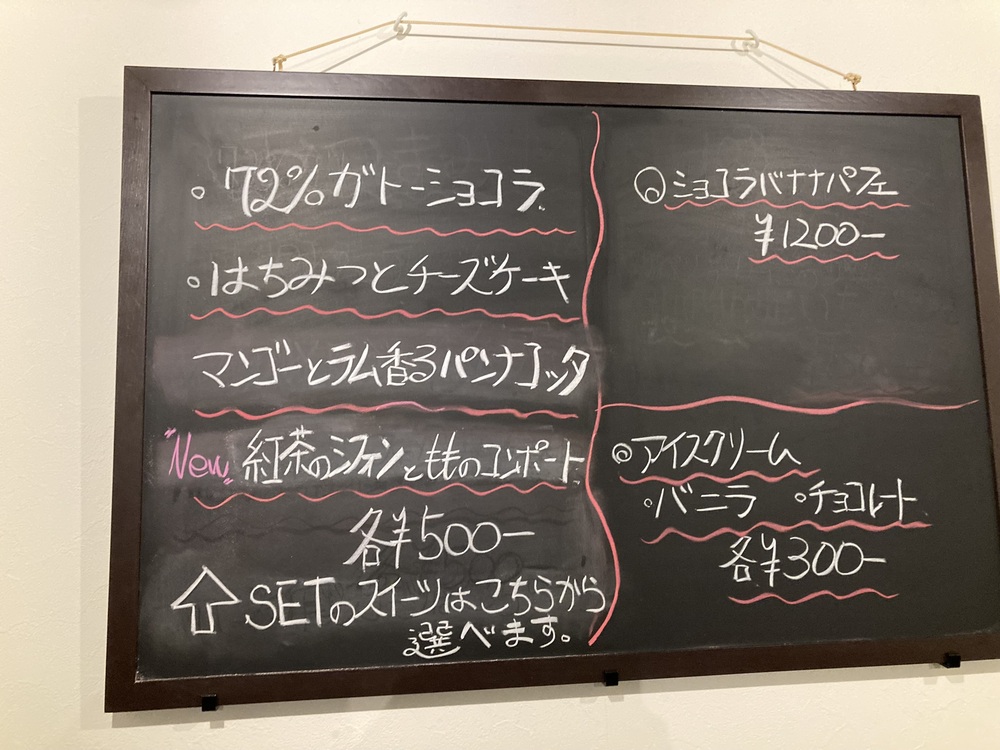 。72%ガトーショコラ
。はちみつとチーズケーキ
マンゴーとラム香るパンナコッタ
"New" 紅茶のシフォンともものコンポート
各¥500ー
⇧SETのスイーツはこちらから
選べます。
◎ショコラバナナパフェ
¥1200ー
◎アイスクリーム
。バニラ 。チョコレート
各¥300ー